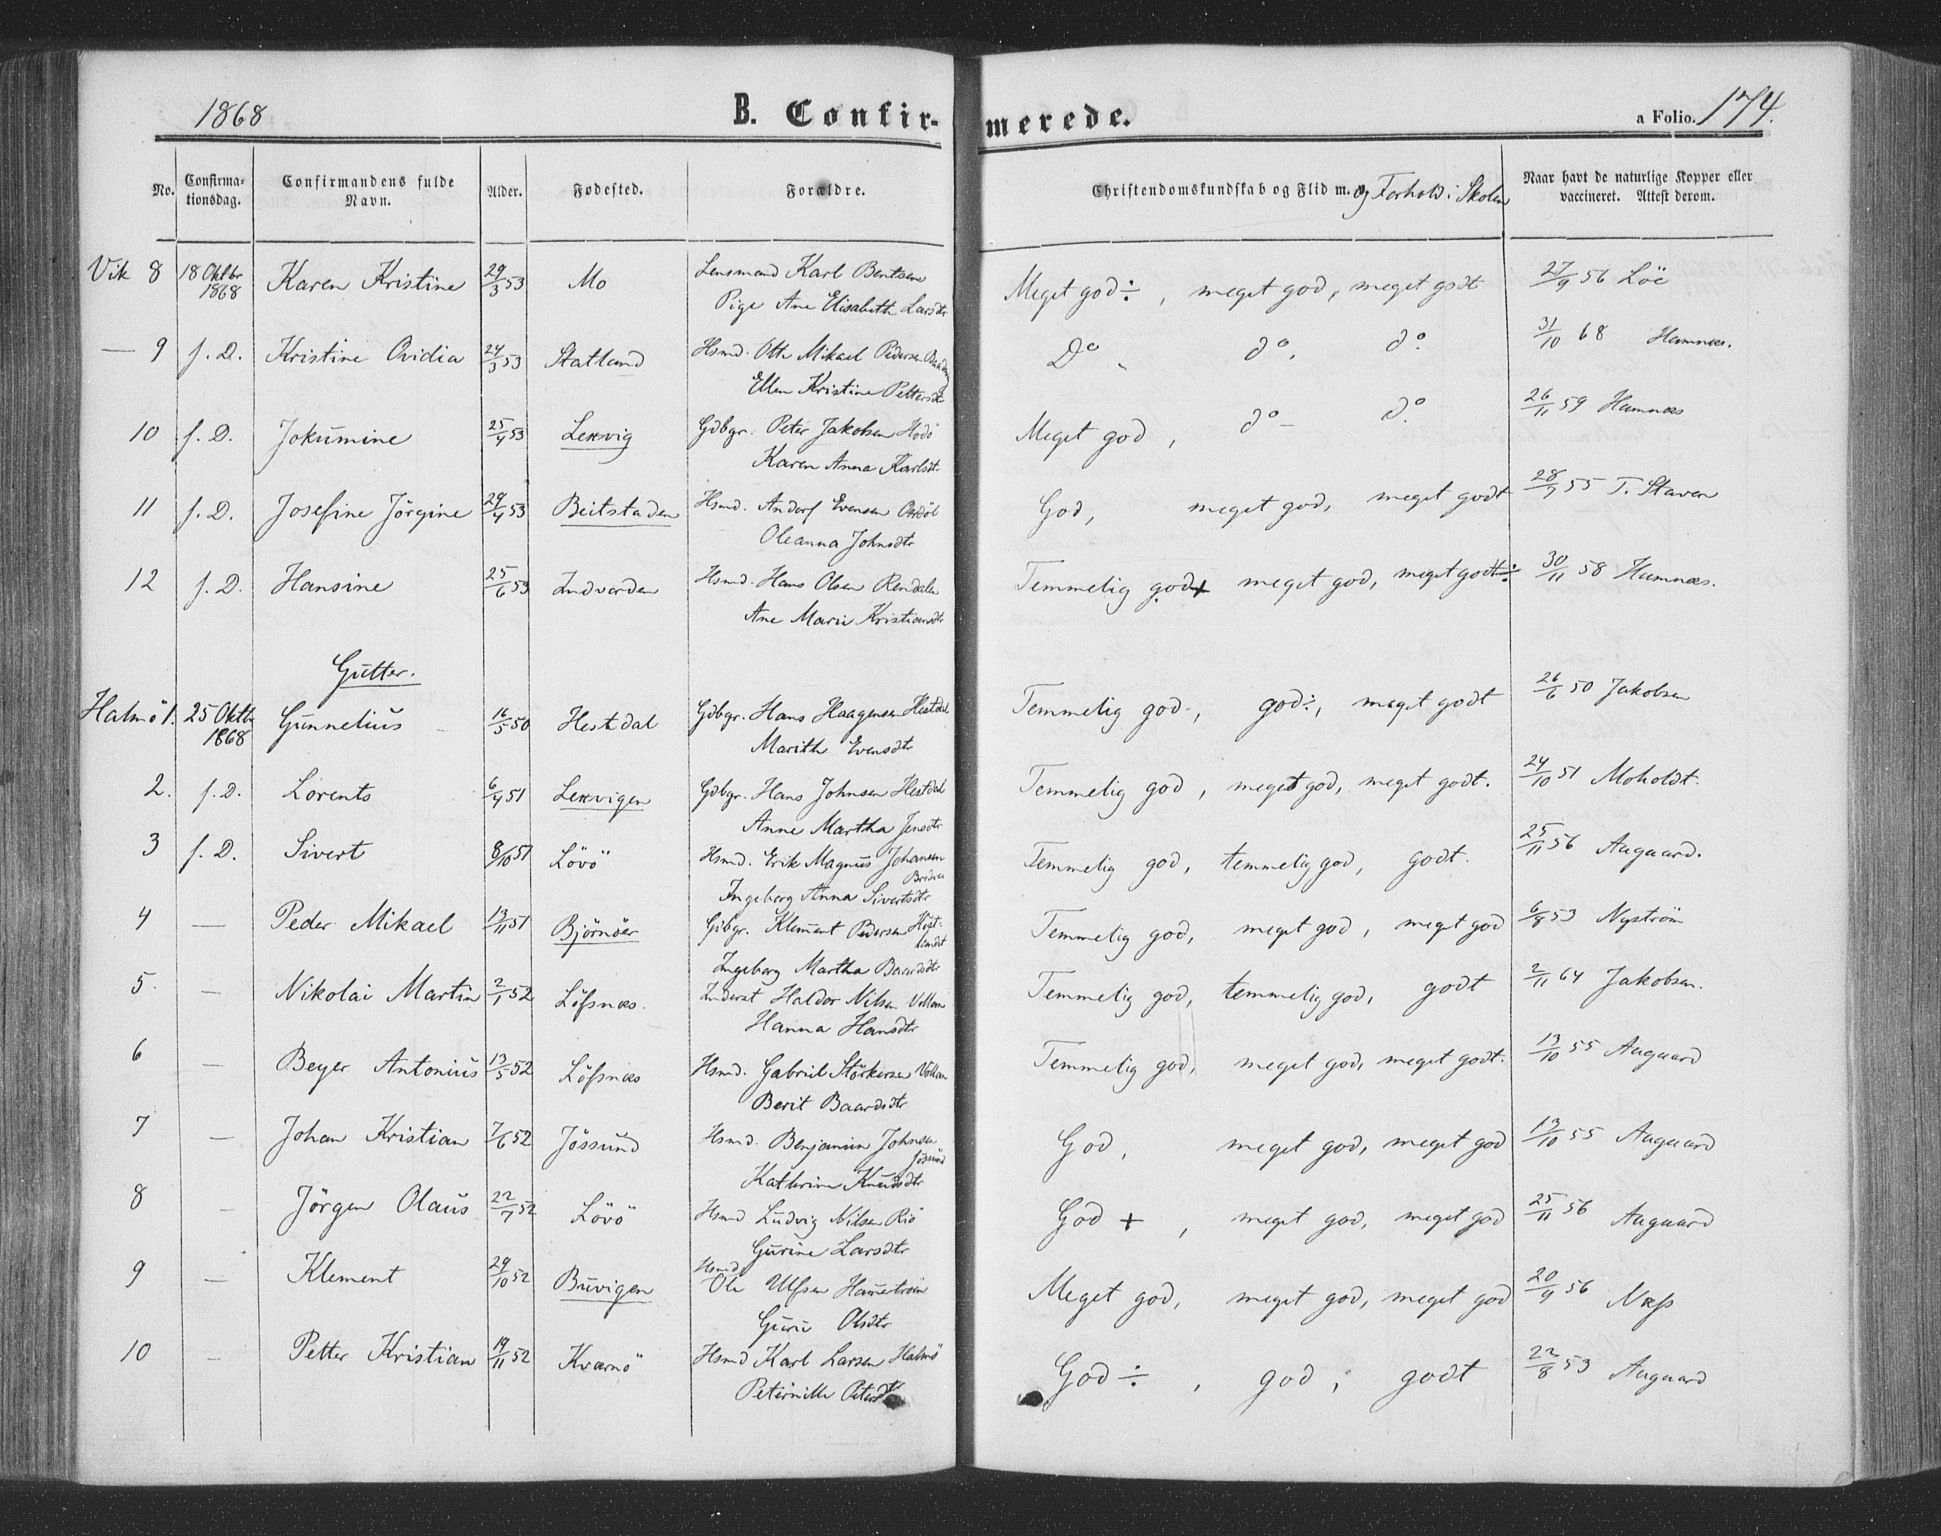 1868 B. Confir- merede. a Folio. 174.
No. Confirma-tionsdag. Confirmandens fulde Navn. Alder. Fødested. Forældre. Christendomskundskab og Flid m. og Forhold i Skolen Naar havt de naturlige Kopper eller vaccineret. Attest derom.
Vik 8 18 Oktbr 1868 Karen Kristine 29/3 53 Mo Lensmand Karl Bentsen Meget god ÷, meget god, meget godt 27/9 56 Löe
Pige Ane Elisabeth Larsdtr
— 9 f. D. Kristine Ovidia 24/3 53 Statland Hsmd. Otto Mikael Pedersen Do do. do. 31/10 68 Hamnæs.
Ellen Kristine Pettersdtr
10 f. D. Jokumine 25/4 53 Lexvig Gdbgr. Peter Jakobsen Hodö Meget god, do — do. 26/11 59 Hamnæs
Karen Anna Karlsdt.
11 f. D. Josefine Jörgine 29/4 53 Beitstaden Hsmd. Andorf Evensen God, meget god, meget godt 28/7 55 T. Staven
Oleanna Johnsdtr
12 f. D. Hansine 25/6 53 Indvorden Hsmd. Hans Olsen Rendalen Temmelig god+ meget god, meget godt÷ 30/11 58 Hamnæs.
Ane Marie Kristiansdtr
Gutter.
Halmö 1. 25 Oktb 1868 Gunnelius 16/5 50 Hestdal Gdbgr. Hans Haagensen Hestdal Temmelig god, god÷, meget godt 26/6 50 Jakobsen
Marith Evensdtr
2. f. D. Lorents 6/4 51 Lexvigen Gdbgr. Hans Johnsen Hestdal Temmelig god, meget god, meget godt. 24/10 51 Moholdt.
Anne Martha Jensdtr
3 f. D. Sivert 8/10 51 Lövö Hsmd. Erik Magnus Johansen Temmelig god, temmelig god, godt. 25/11 56 Aagaard.
Ingeborg Anna Sivertsdtr
4 — Peder Mikael 13/11 51 Björnöer Gdbgr. Klement Pedersen Temmelig god, meget god, meget god 6/8 53 Nyström
Ingeborg Martha Baardsdtr
5. — Nikolai Martin 2/1 52 Löfsnæs. Inderst Haldor Nilsen Vollan Temmelig god, temmelig god, godt 2/11 64 Jakobsen.
Hanna Hansdtr
6 — Beyer Antonius 13/5 52 Löfsnæs Hsmd. Gabriel Störkersen Vollan Temmelig god, meget god, meget godt. 13/10 55 Aagaard
Berit Baardsdtr
7 — Johan Kristian 7/6 52 Jössund Hsmd. Benjamin Johnsen Jösund God, meget god, meget god 13/10 55 Aagaard
Kathrine Knudsdtr
8 — Jörgen Olaus 22/7 52 Lövö Hsmd Ludvig Nilsen Riö God +, meget god, meget god 25/11 56 Aagaard
Gurine Larsdtr
9 — Klement 29/10 52 Buvigen Hsmd. Ole Ulfsen Meget god, meget god, meget god 20/9 56 Næss
Guru Olsdtr
10 — Petter Kristian 19/11 52 Kvarnö Hsmd Karl Larsen Halmö God ÷, god, godt 22/8 53 Aagaard
Peternille